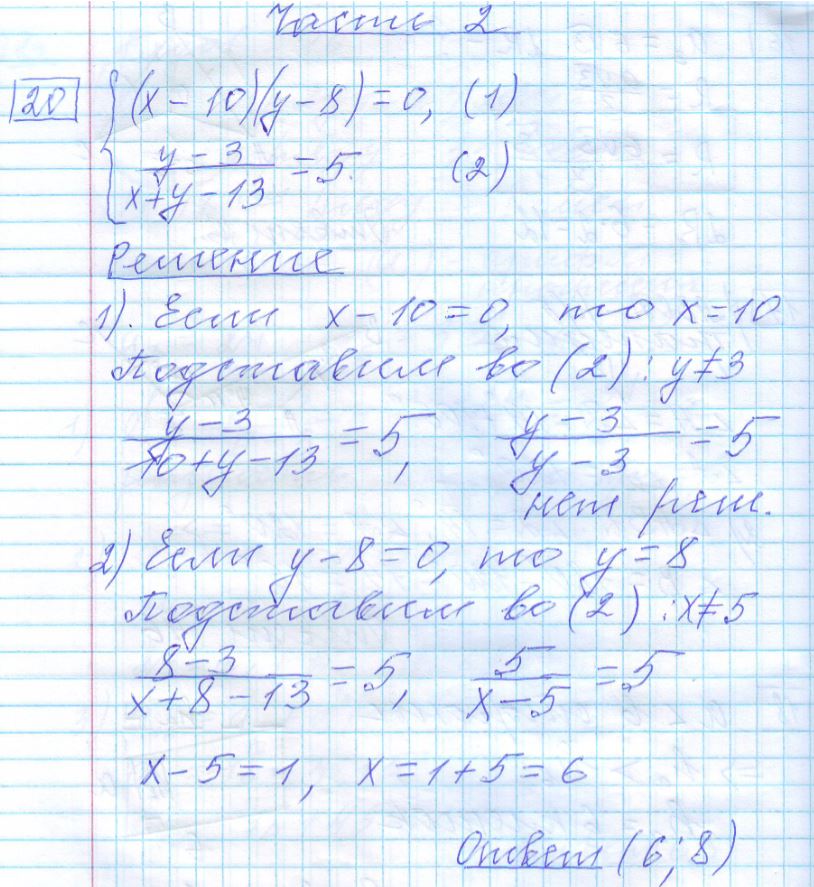 Часть 2
20 { (x - 10)(y - 8) = 0, (1)
(y - 3)/(x + y - 13) = 5. (2)
Решение
1). Если x - 10 = 0, то x = 10
Подставим во (2): y ≠ 3
(y - 3)/(10 + y - 13) = 5, (y - 3)/(y - 3) = 5
нет реш.
2) Если y - 8 = 0, то y = 8
Подставим во (2): x ≠ 5
(8 - 3)/(x + 8 - 13) = 5, 5/(x - 5) = 5
x - 5 = 1, x = 1 + 5 = 6
Ответ (6; 8)